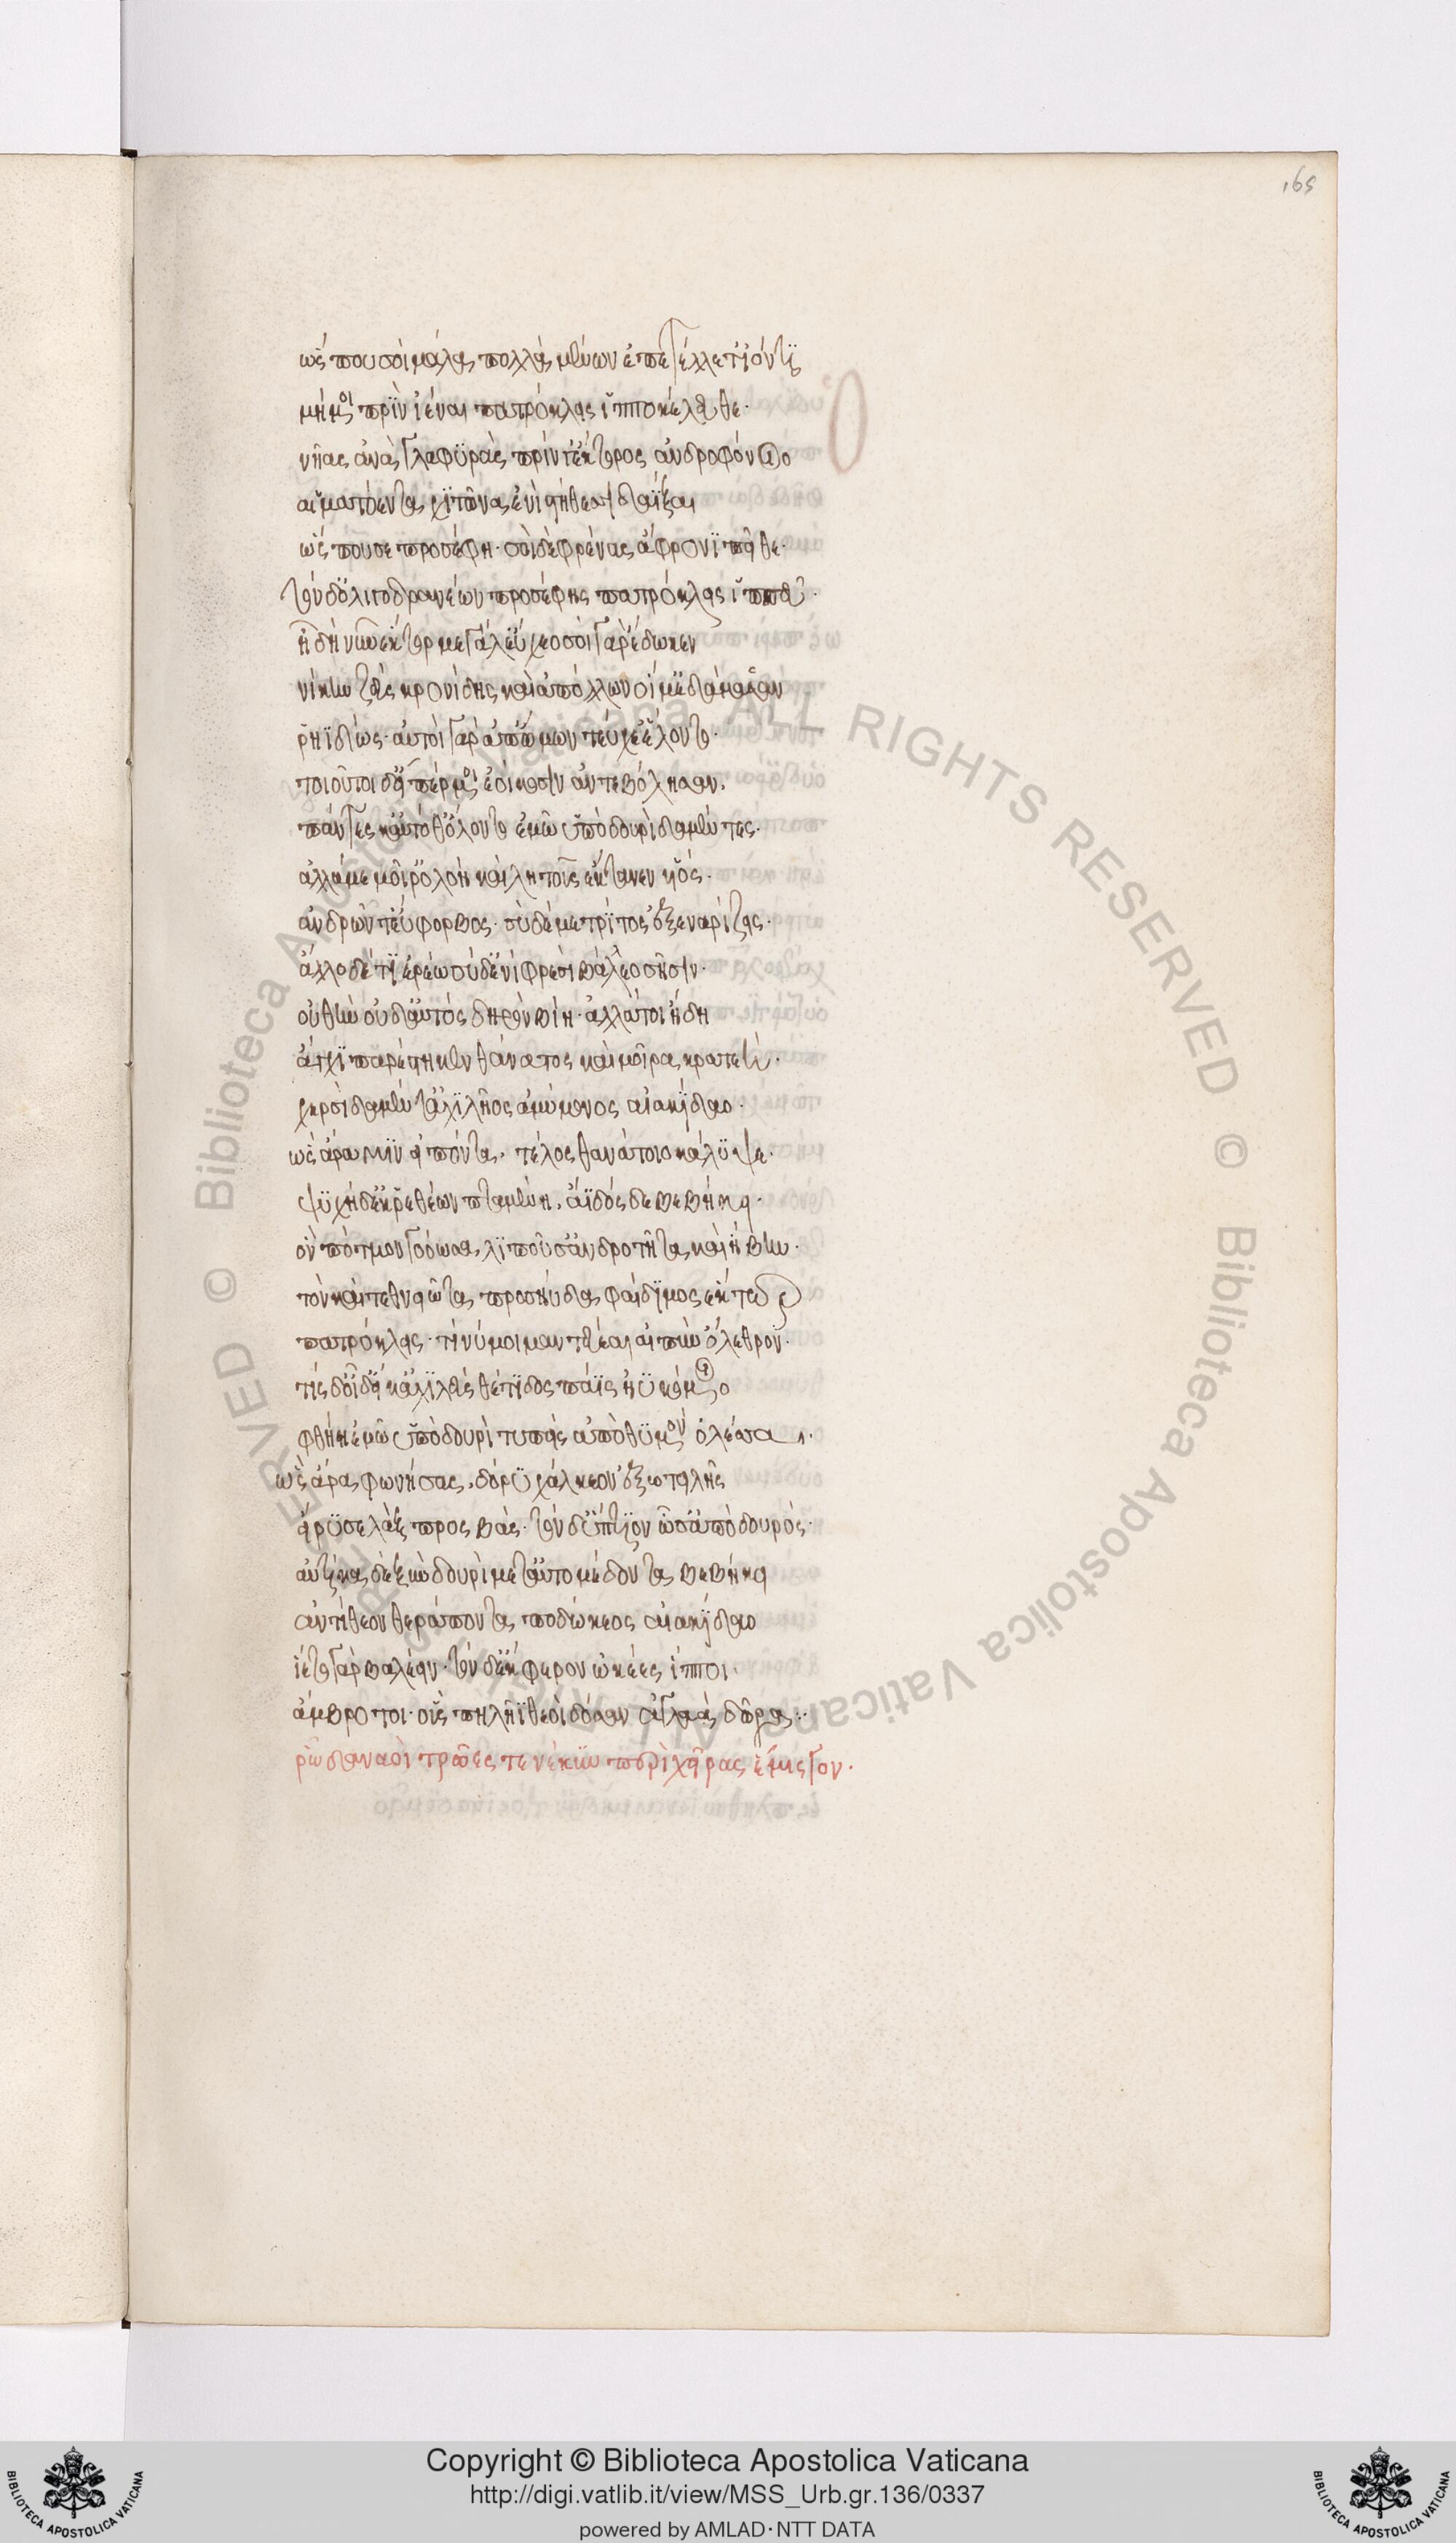 165
ὥς που σοὶ μάλα πολλὰ μένων ἐπέτελλετ' ἰόντι
μή μοι πρὶν ἰέναι πατρόκλεις ἱπποκέλευθε·
νῆας ἀνὰ γλαφυρὰς πρίν γ' ἕκτορος ἀνδροφόνοιο
αἱματόεντα χιτῶνα ἐνὶ στήθεσσι δαΐξαι
ὥς που σε προσέφη· σοὶ δὲ φρένας ἄφρονι πεῖθε·
τὸν δ' ὀλιγοδρανέων προσέφης πατρόκλεις ἱππεῦ·
ἤδη νῦν ἕκτορ μεγάλ' εὔχεο σοὶ γὰρ ἔδωκεν
νίκην ζεὺς κρονίδης καὶ ἀπόλλων οἵ με δάμασσαν
ῥηϊδίως· αὐτοὶ γὰρ ἀπ' ὤμων τεύχε' ἕλοντο·
τοιοῦτοι δ' εἴπέρ μοι ἐείκοσιν ἀντεβόλησαν.
πάντες κ' αὐτόθ' ὄλοντο ἐμῷ ὑπὸ δουρὶ δαμέντες·
ἀλλά με μοῖρ' ὀλοὴ καὶ λητοῦς ἔκτανεν υἱός·
ἀνδρῶν δ' εὔφορβος· σὺ δέ με τρίτος ἐξεναρίζεις·
ἄλλο δέ τι ἐρέω σὺ δ' ἐνὶ φρεσὶ βάλλεο σῇσιν·
οὔθην οὐδ' αὐτὸς δηρὸν βίῃ· ἀλλά τοι ἤδη
ἄγχι παρέστηκεν θάνατος καὶ μοῖρα κραταιή·
χερσὶ δαμέντ' ἀχιλῆος ἀμύμονος αἰακίδαο·
ὣς ἄρα μιν εἰπόντα. τέλος θανάτοιο κάλυψε·
ψυχὴ δ' ἐκ ῥεθέων πταμένη. ἄϊδόσδε βεβήκει·
ὃν πότμον γοόωσα. λιποῦσ' ἀνδροτῆτα καὶ ἥβην·
τὸν καὶ τεθνειῶτα προσηύδα φαίδιμος ἕκτωρ
πατρόκλεις· τί νύ μοι μαντεύεαι αἰπὺν ὄλεθρον·
τίς δ' οἶδ' εἴ κ' ἀχιλεὺς θέτιδος πάϊς ἠϋκόμοιο
φθήῃ ἐμῷ ὑπὸ δουρὶ τυπεὶς ἀπὸ θυμὸν ὀλέσσαι.
ὣς ἄρα φωνήσας. δόρυ χάλκεον ἐξ ὠτειλῆς
εἴρυσε λὰξ προσβάς· τὸν δ' ὕπτιον ὦσ' ἀπὸ δουρός·
αὐτίκα δὲ ξὺν δουρὶ μετ' αὐτομέδοντα βεβήκει
ἀντίθεον θεράποντα ποδώκεος αἰακίδαο
ἵετο γὰρ βαλέειν· τὸν δ' ἔκφερον ὠκέες ἵπποι·
ἄμβροτοι· οὓς πηλῆϊ θεοὶ δόσαν ἀγλαὰ δῶρα:·
ῥῶ δαναοὶ τρῶές τε νέκυν περὶ χεῖρας ἔμισγον·
Copyright © Biblioteca Apostolica Vaticana
http://digi.vatlib.it/view/MSS_Urb.gr.136/0337
powered by AMLAD·NTT DATA